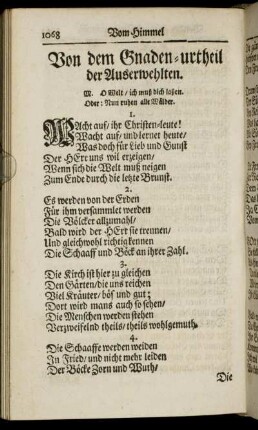 1068 Vom Himmel
Von dem Gnaden-urtheil
der Auserwehlten.
M. O Welt / ich muß dich laßen.
Oder: Nun ruhen alle Wälder.
1.
WAcht auf / ihr Christen-leute!
Wacht auf / und lernet heute /
Was doch für Lieb und Gunst
Der HErr uns wil erzeigen /
Wenn sich die Welt muß neigen
Zum Ende durch die letzte Brunst.
2.
Es werden von der Erden
Für ihm versammlet werden
Die Völcker allzumahl /
Bald wird der HErr sie trennen /
Und gleichwohl richtig kennen
Die Schaaff und Böck an ihrer Zahl.
3.
Die Kirch ist hier zu gleichen
Den Gärten / die uns reichen
Viel Kräuter / böß und gut;
Dort wird mans auch so sehen /
Die Menschen werden stehen
Verzweifelnd theils / theils wohlgemuth.
4.
Die Schaaffe werden weiden
In Fried / und nicht mehr leiden
Der Böcke Zorn und Wuth /
Die